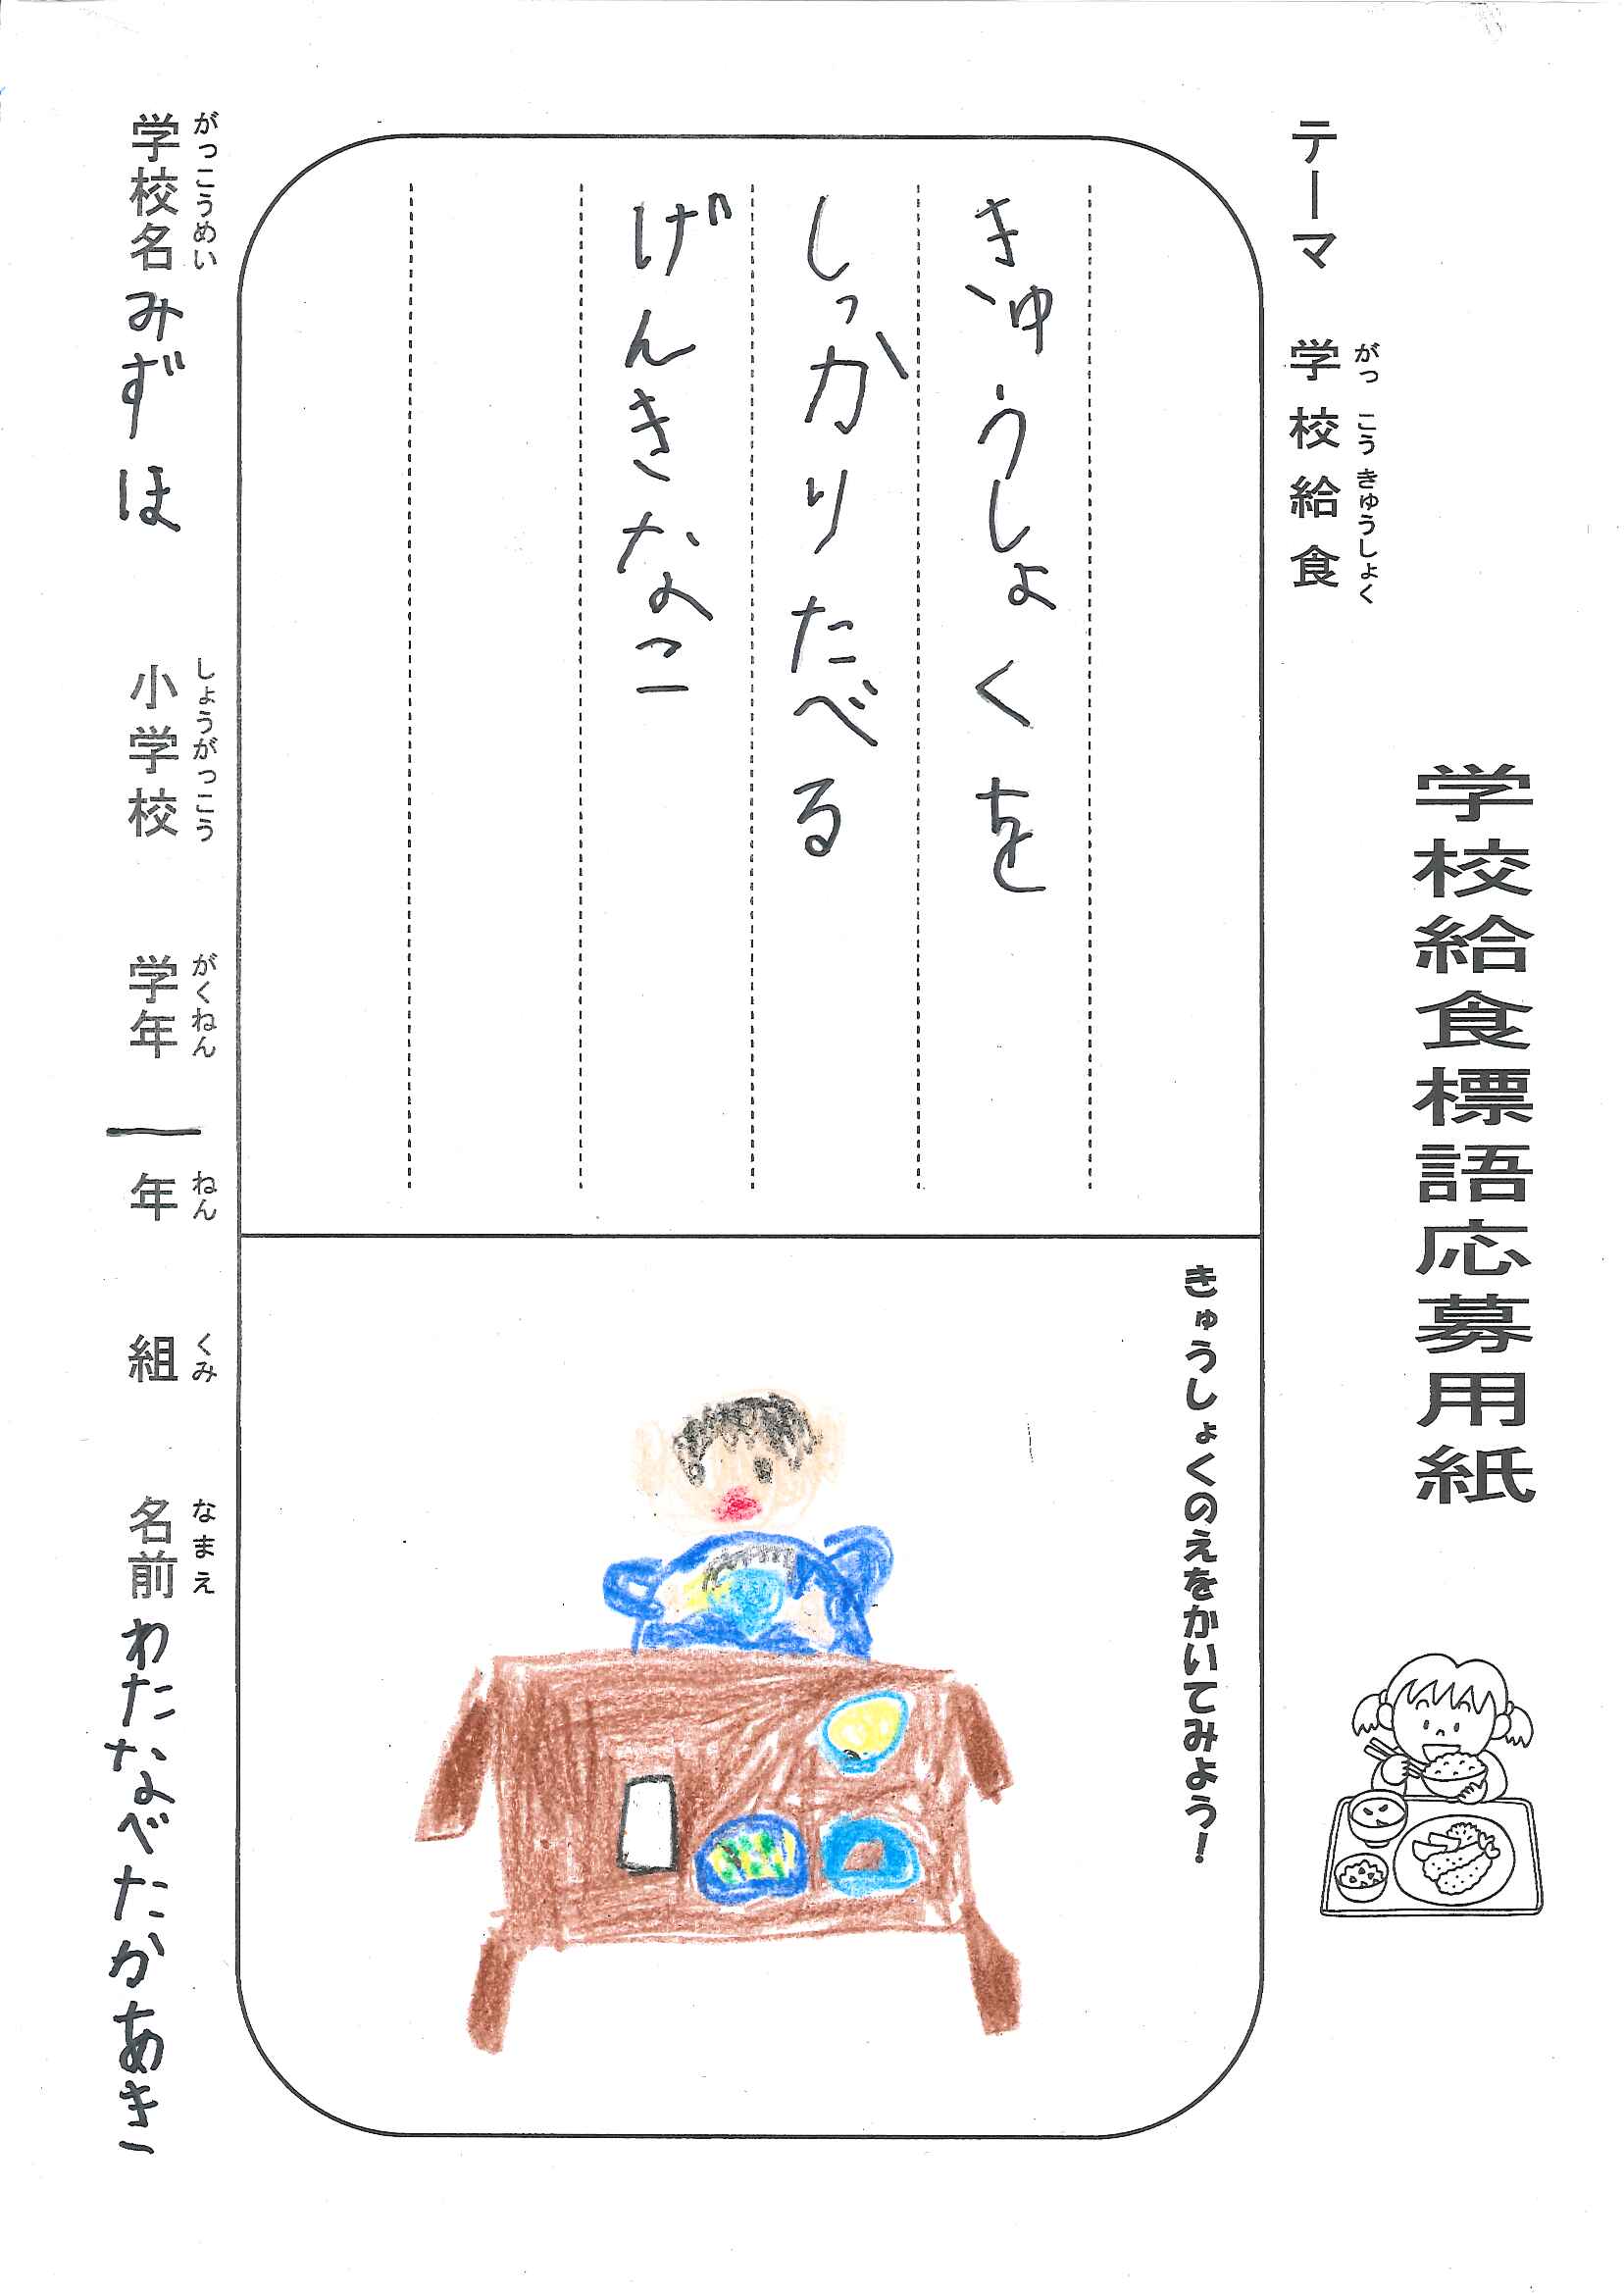 学校給食標語応募用紙
テーマ 学校給食
がっこうきゅうしょく
きゅうしょくを
しっかりたべる
げんきなこ
きゅうしょくのえをかいてみよう！
がっこうめい しょうがっこう がくねん ねん くみ なまえ
学校名 みずほ 小学校 学年 一年 組 名前 わたなべたかあき